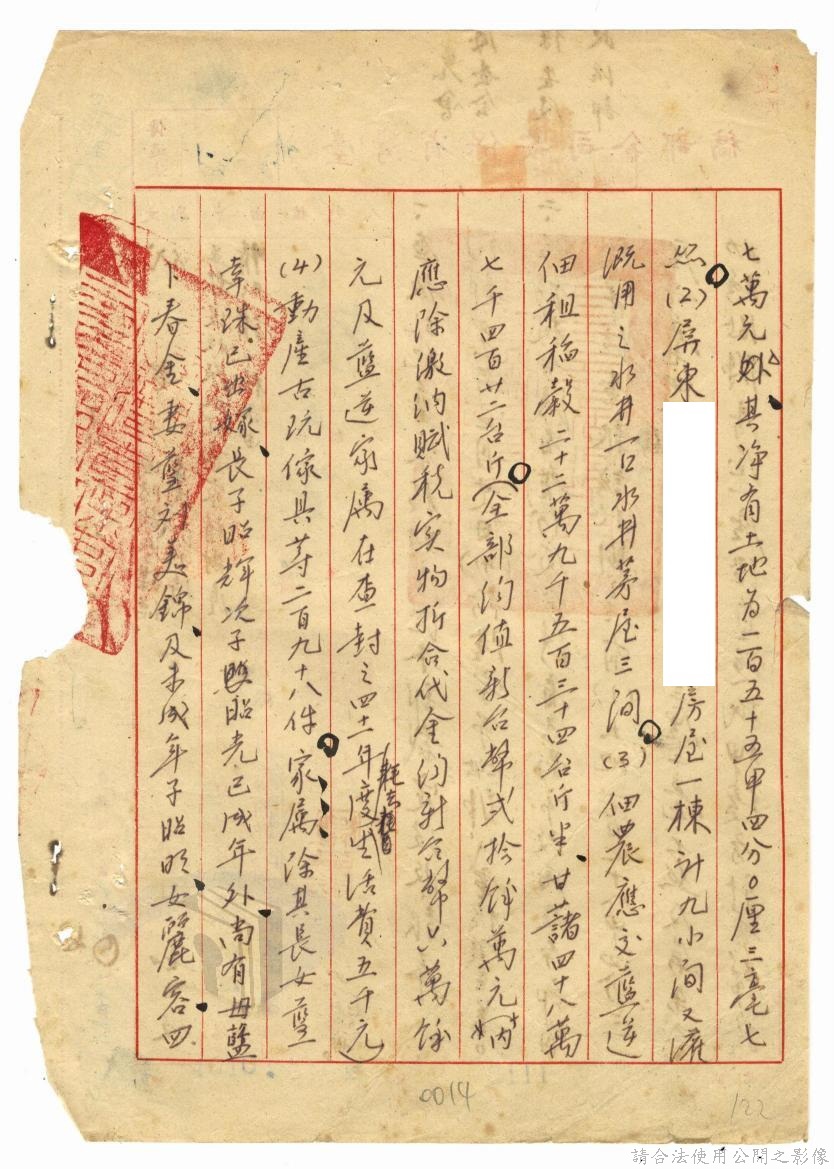 七萬元外其净有土地为一百五十五甲四分0厘三毫七
丝(2)屏東
房屋一棟計九小间又灌
溉用之水井一口水井茅屋三间(3)佃農應交藍逆
佃租稻穀二十二萬九千五百三十四台斤半、甘藷四十八萬
七千四百廿二台斤(全部约值新台幣弍拾餘萬元内
應除激纳赋税实物折合代金约新台幣六萬餘
元及藍逆家属在查封之四十一年度生活費五千元)
(4)動產古玩傢具等二百九十八件家属除其長女藍
幸珠已出嫁、長子昭輝次子昭光已成年外尚有母藍
卜春金、妻藍刘美錦、及未成年子昭明、女麗容四
0014
122
請合法使用公開之影像